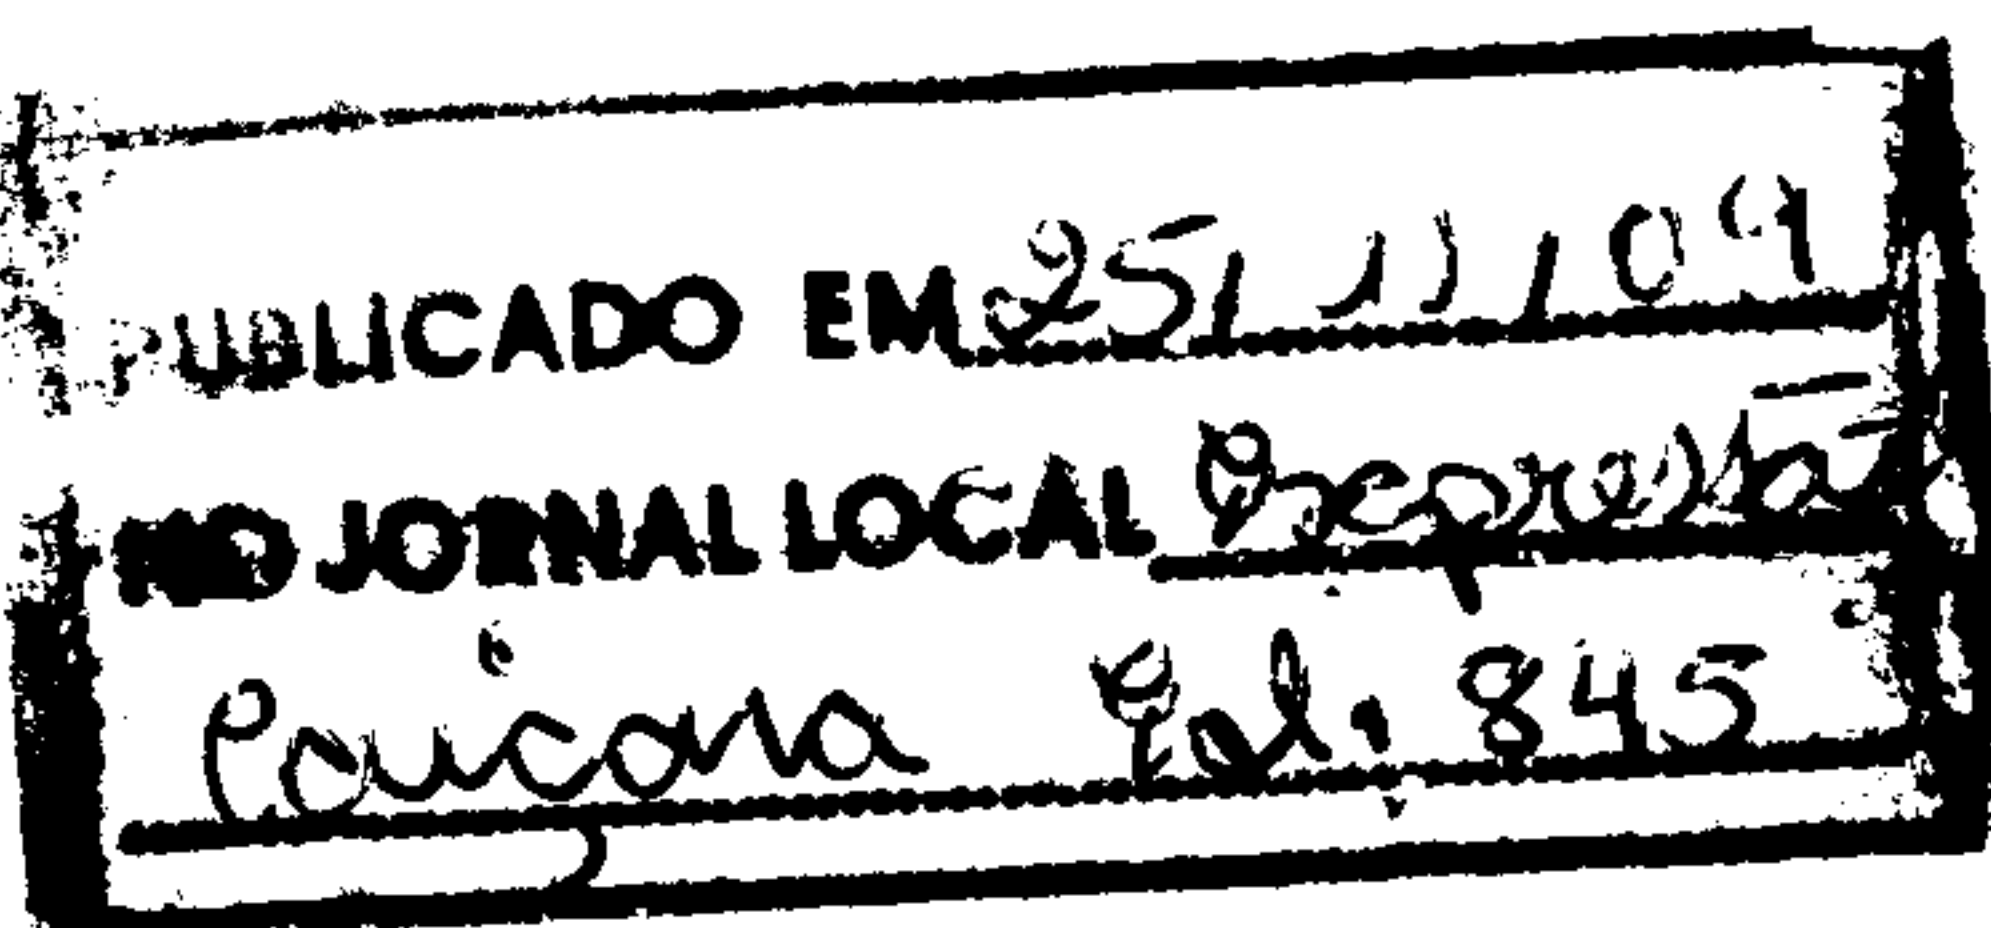 PUBLICADO EM 25/11/04
NO JORNAL LOCAL Expressão
Caiçara Ed. 845